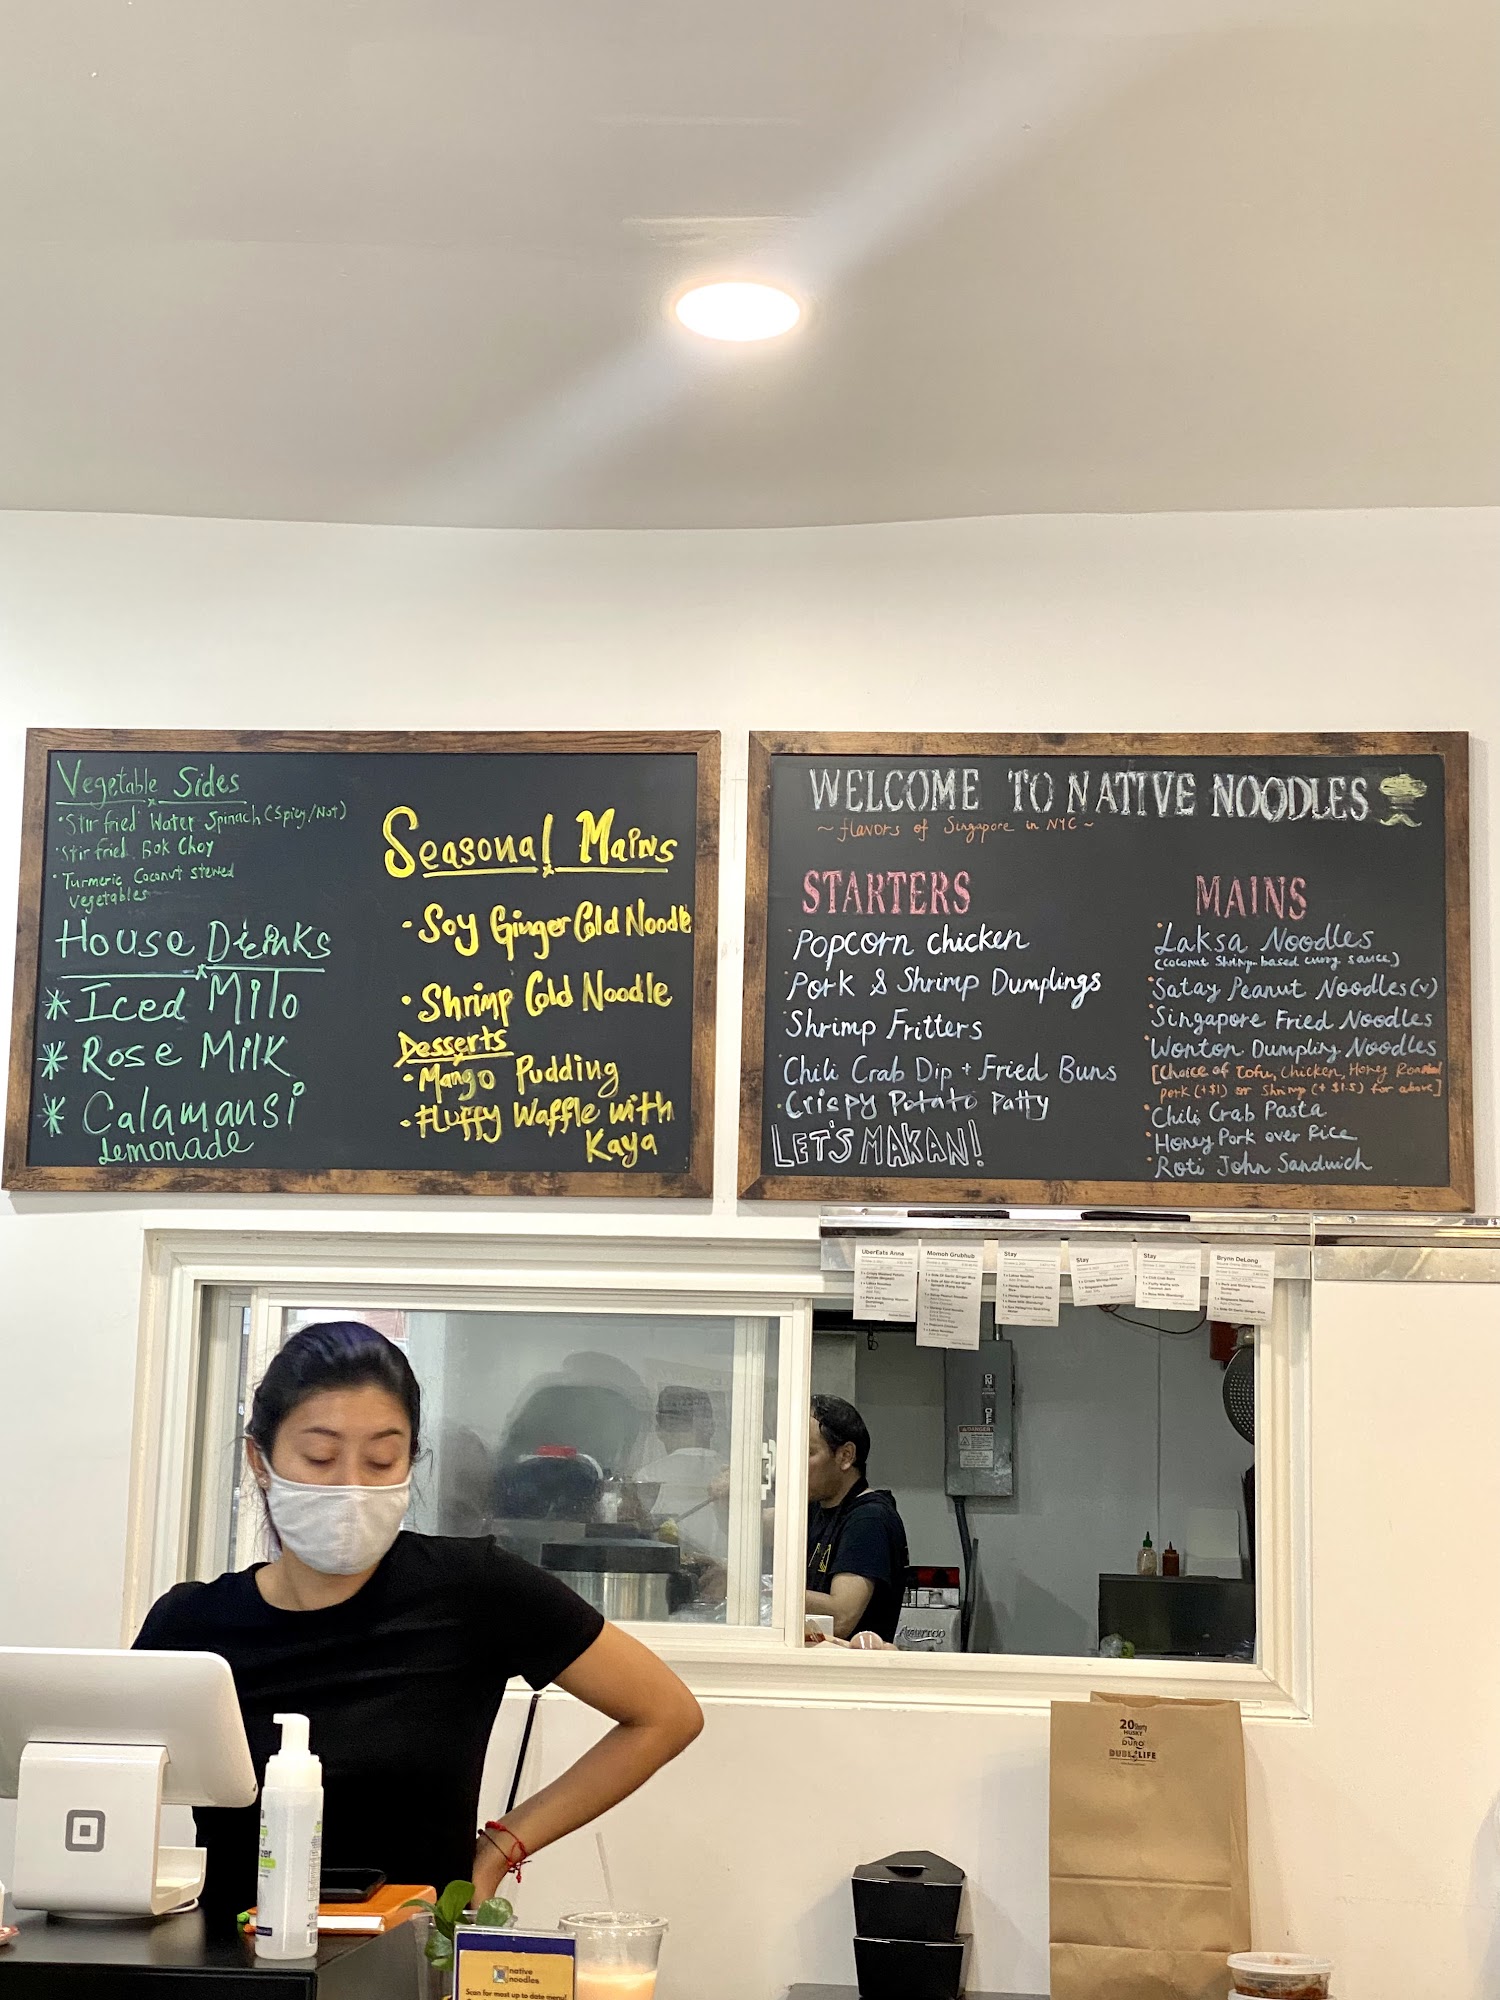 Vegetable Sides
• Stir fried Water Spinach (Spicy/Not)
• Stir fried Bok Choy
• Turmeric Coconut stewed
vegetables
House Drinks
* Iced Milo
* Rose Milk
* Calamansi
Lemonade
Seasonal Mains
• Soy Ginger Cold Noodle
• Shrimp Cold Noodle
Desserts
• Mango Pudding
• Fluffy Waffle with
Kaya
WELCOME TO NATIVE NOODLES
~ flavors of Singapore in NYC ~
STARTERS
Popcorn chicken
Pork & Shrimp Dumplings
Shrimp Fritters
Chili Crab Dip + Fried Buns
Crispy Potato Patty
LET'S MAKAN!
MAINS
Laksa Noodles
(coconut Shrimp-based curry sauce)
Satay Peanut Noodles (v)
Singapore Fried Noodles
Wonton Dumpling Noodles
[Choice of Tofu, Chicken, Honey Roasted
pork (+$1) or Shrimp (+$1.5) for above]
Chili Crab Pasta
Honey Pork over Rice
Roti John Sandwich
UberEats Anna
Momoh Grubhub
Stay
Stay
Stay
Brynn DeLong
DANGER
20 Shorty
HUSKY
DURO
DUBL LIFE
native
noodles
Scan for most up to date menu!